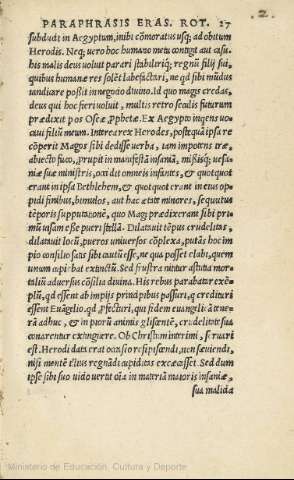 PARAPHRASIS ERAS. ROT. 27
2.
subduxit in Aegyptum, inibi cōmoratus usq; ad obitum
Herodis. Neq; uero hoc humano metu contigit aut casu.
his malis deus uoluit parari stabiliriq́; regnū filij sui,
quibus humanae res solēt labefactari, ne qd sibi mūdus
uendicare possit in negotio diuino. Id quo magis credas,
deus qui hoc fieri uoluit, multis retro seculis futurum
praedixit per Oseā, Pphetā. Ex Aegypto inqens uo
caui filiū meum. Interea rex Herodes, postquā ipsa re
cōperit Magos sibi dedisse uerba, tam impotens irae,
abiecto fuco, prupit in manifestā insaniā, missisq; uesa
niae suae ministris, occidit omneis infantes, & quotquot
erant in ipsa Bethlehem, & quotquot erant in eius op
pidi finibus, bimulos, aut hac aetate minores, sequutus
tēporis supputationē, quo Magi praedixerant sibi pri
mū uisam esse pueri stellā. Dilatauit tēpus crudelitas,
dilatauit locū, pueros uniuersos cōplexa, putās hoc im
pio consilio satis cautū esse, ne qua posset elabi, quem
unum cupiebat extinctū. Sed frustra nititur astuta mor
taliū aduersus cōsilia diuina. His rebus parabatur exē
plū, qd essent ab impijs principibus passuri, q credituri
essent Euāgelio. qd pfecturi, qui fidem euangelicā
adhuc, & in piorū animis gliscentē, crudelitate sua
conarentur extinguere. Ob Christum interimi, seruari
est. Herodi data erat occasio resipiscendi, non saeuiendi,
nisi mentē illius regnādi cupiditas excaecasset. Sed dum
ipse sibi suo uitio uertit oīa in materiā maioris insaniae,
sua malicia
Ministerio de Educación, Cultura y Deporte